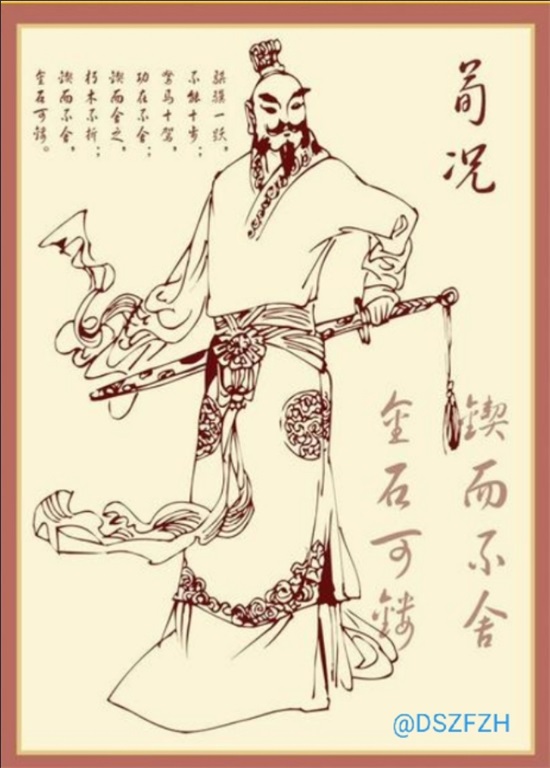 荀况
骐骥一跃，
不能十步；
驽马十驾，
功在不舍；
锲而舍之，
朽木不折；
锲而不舍，
金石可镂。
锲而不舍
金石可镂
@DSZFZH